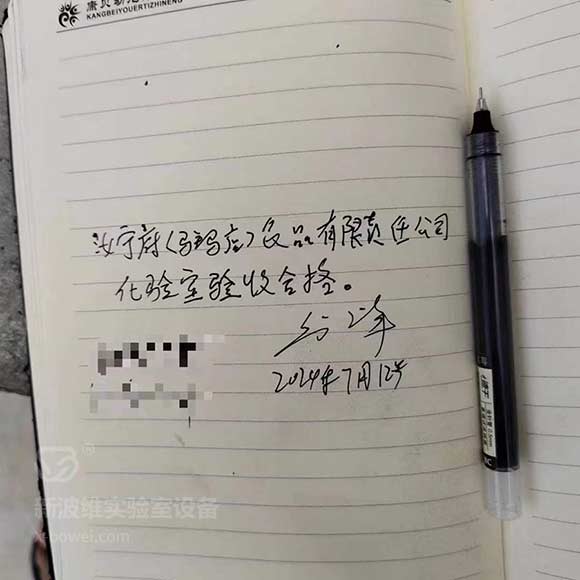 KANGBEIYOUERTIZHINENG
汝宁府(驻马店)食品有限责任公司
化验室验收合格。
2024年7月12号
新波维实验室设备
x-bowei.com